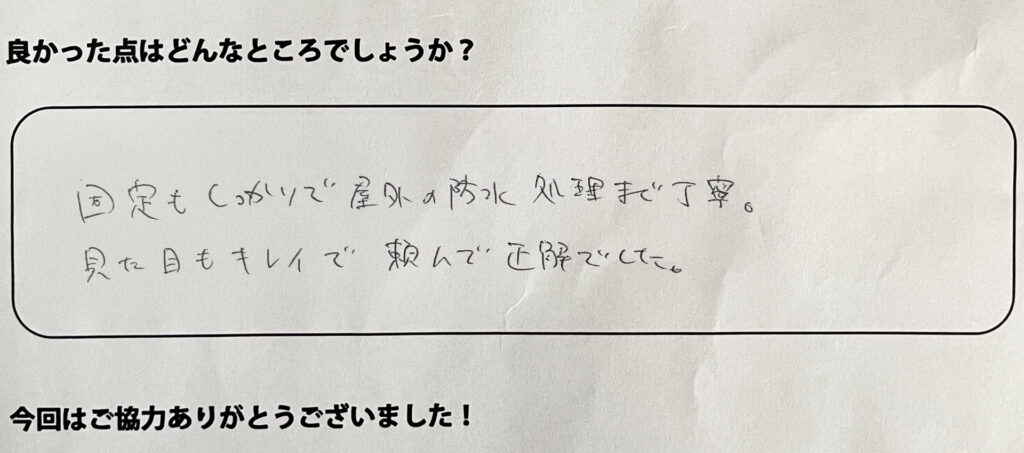 良かった点はどんなところでしょうか？
固定もしっかりで屋外の防水処理まで丁寧。
見た目もキレイで頼んで正解でした。
今回はご協力ありがとうございました！